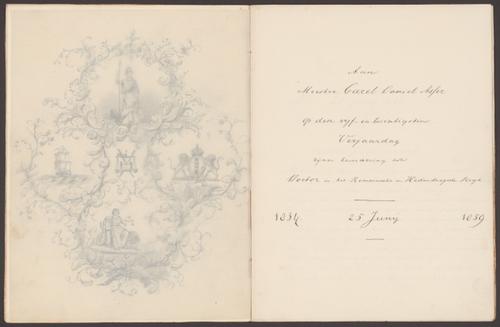 Aan
Meester Carel Daniel Asser
op den vyf en twintigsten
Verjaardag
zyner bevordering tot
Doctor in het Romeinsche en Hedendaagsche Regt
1834 25 Juny 1859